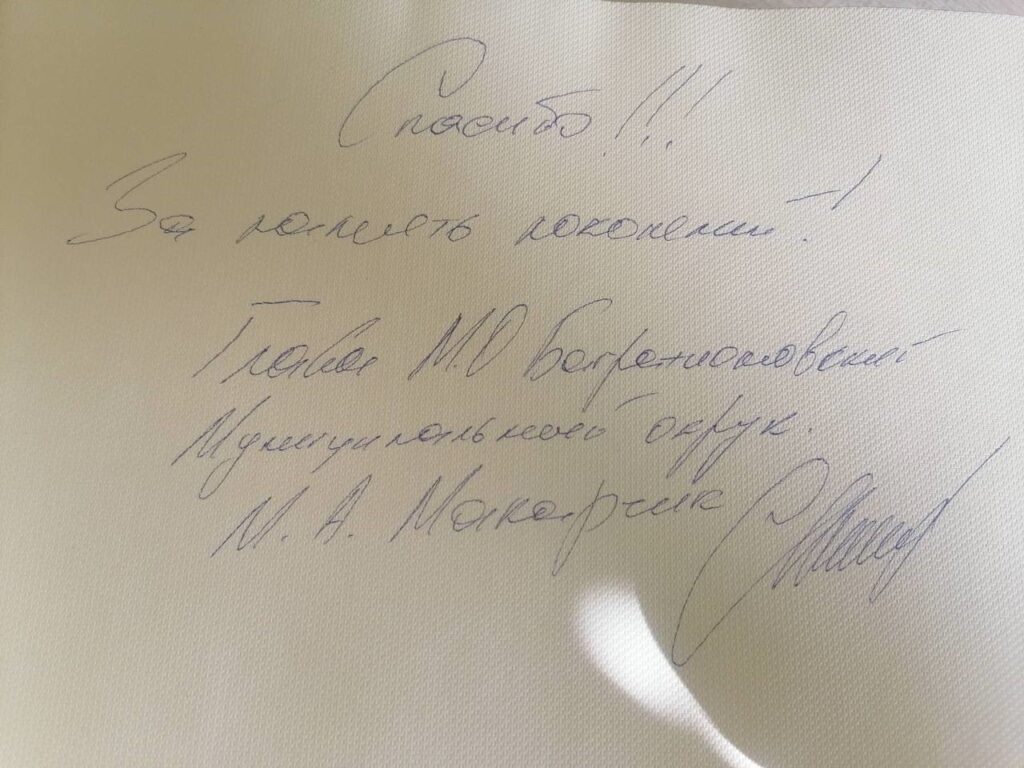 Спасибо!!!
За память поколений!
Глава МО Багратионовский
Муниципальный округ.
М. А. Макарчик